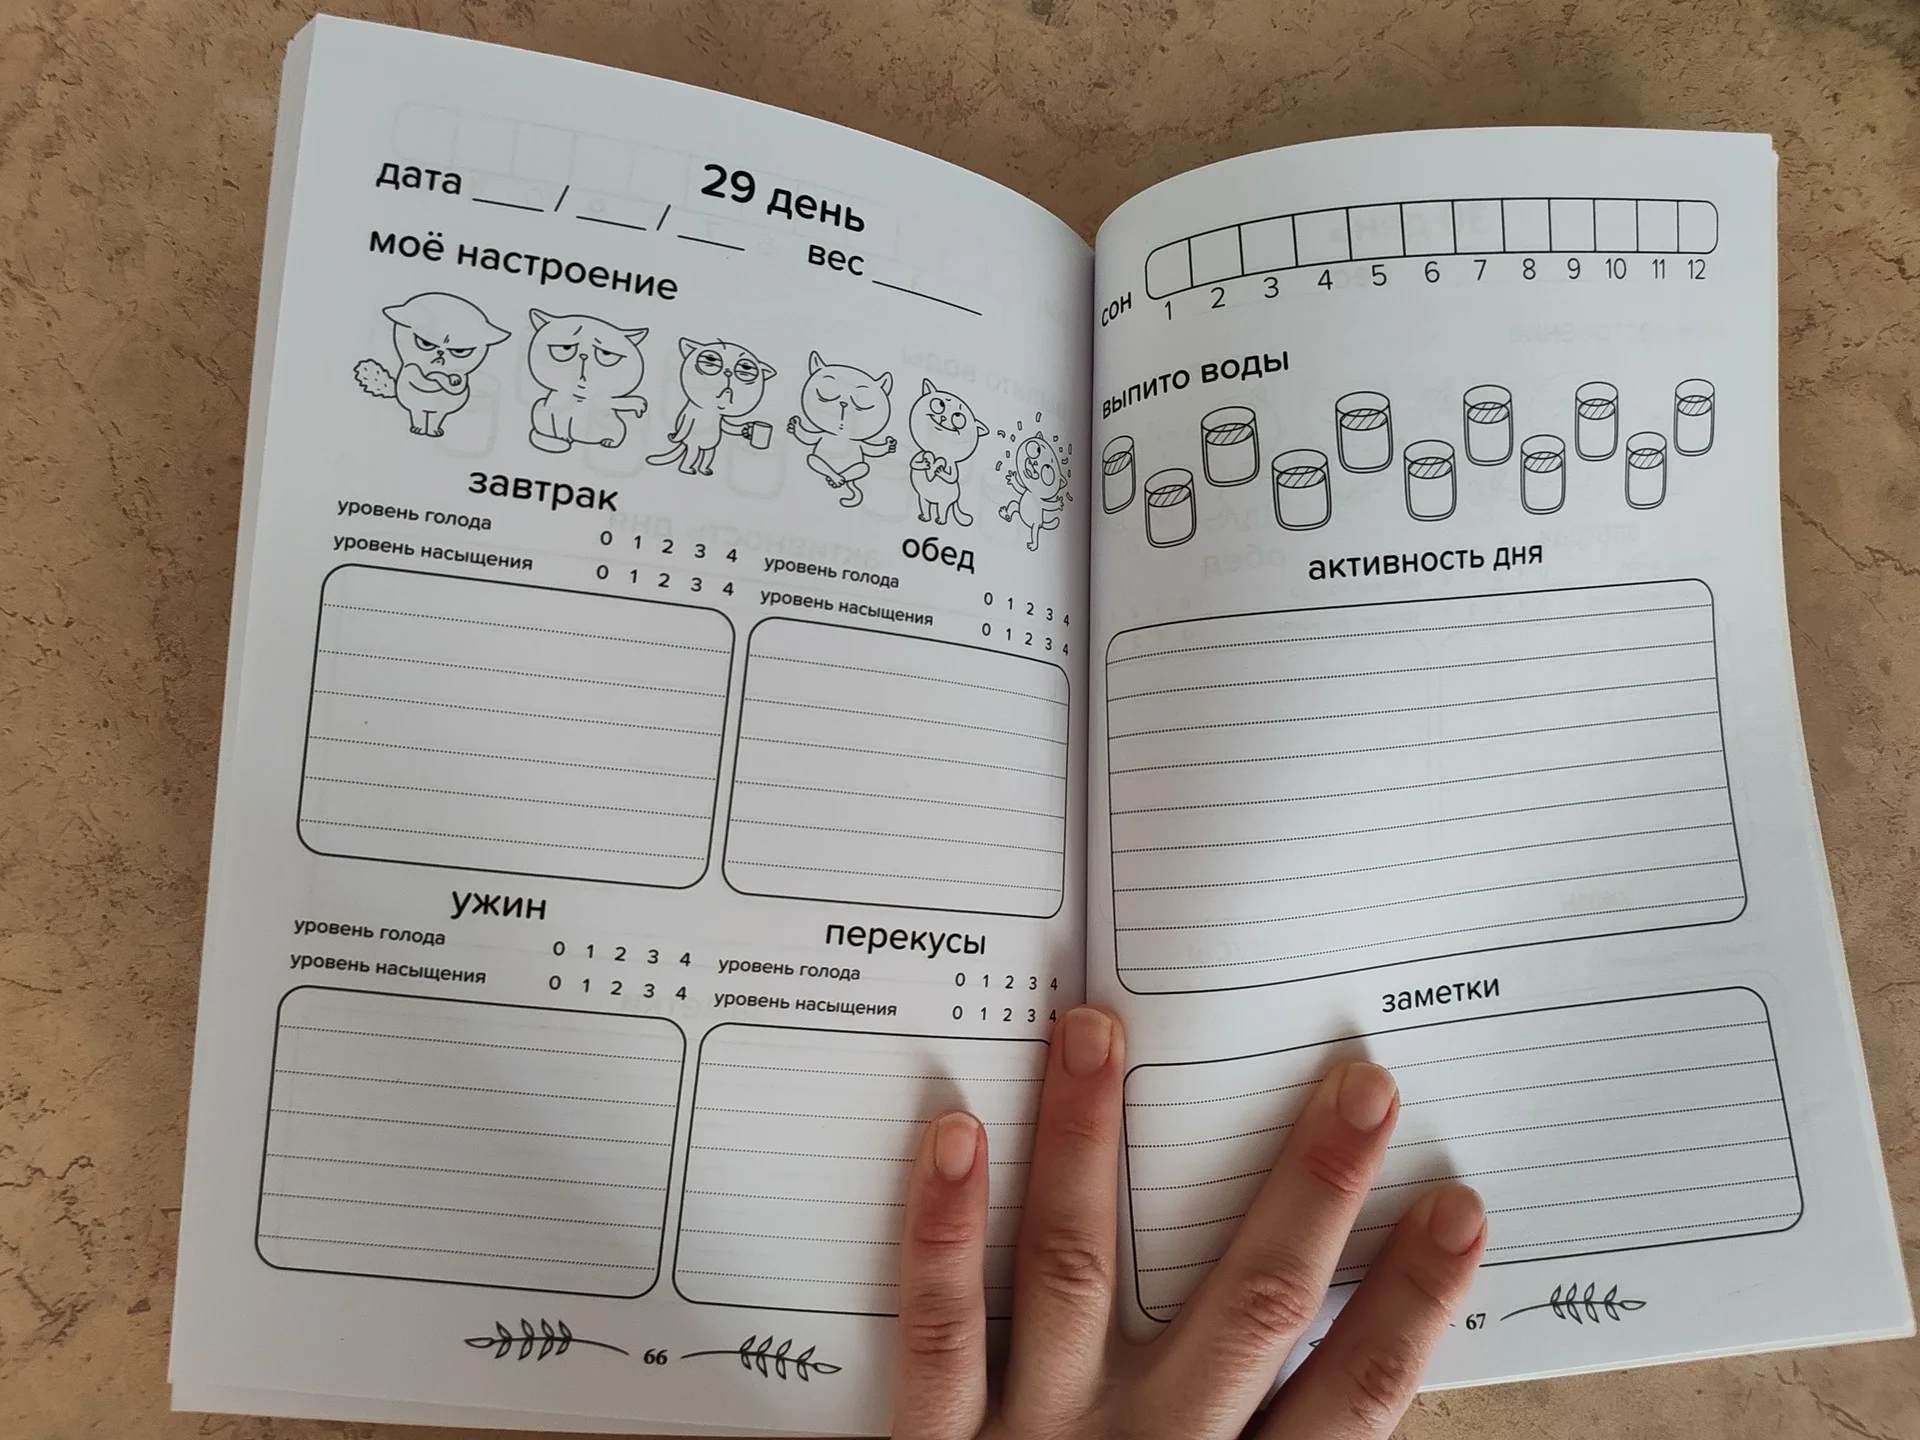 29 день
дата ___ / ___ / ___
вес ______
моё настроение
завтрак
уровень голода 0 1 2 3 4
уровень насыщения 0 1 2 3 4
обед
уровень голода 0 1 2 3 4
уровень насыщения 0 1 2 3 4
ужин
уровень голода 0 1 2 3 4
уровень насыщения 0 1 2 3 4
перекусы
уровень голода 0 1 2 3 4
уровень насыщения 0 1 2 3 4
66
сон 1 2 3 4 5 6 7 8 9 10 11 12
выпито воды
активность дня
заметки
67